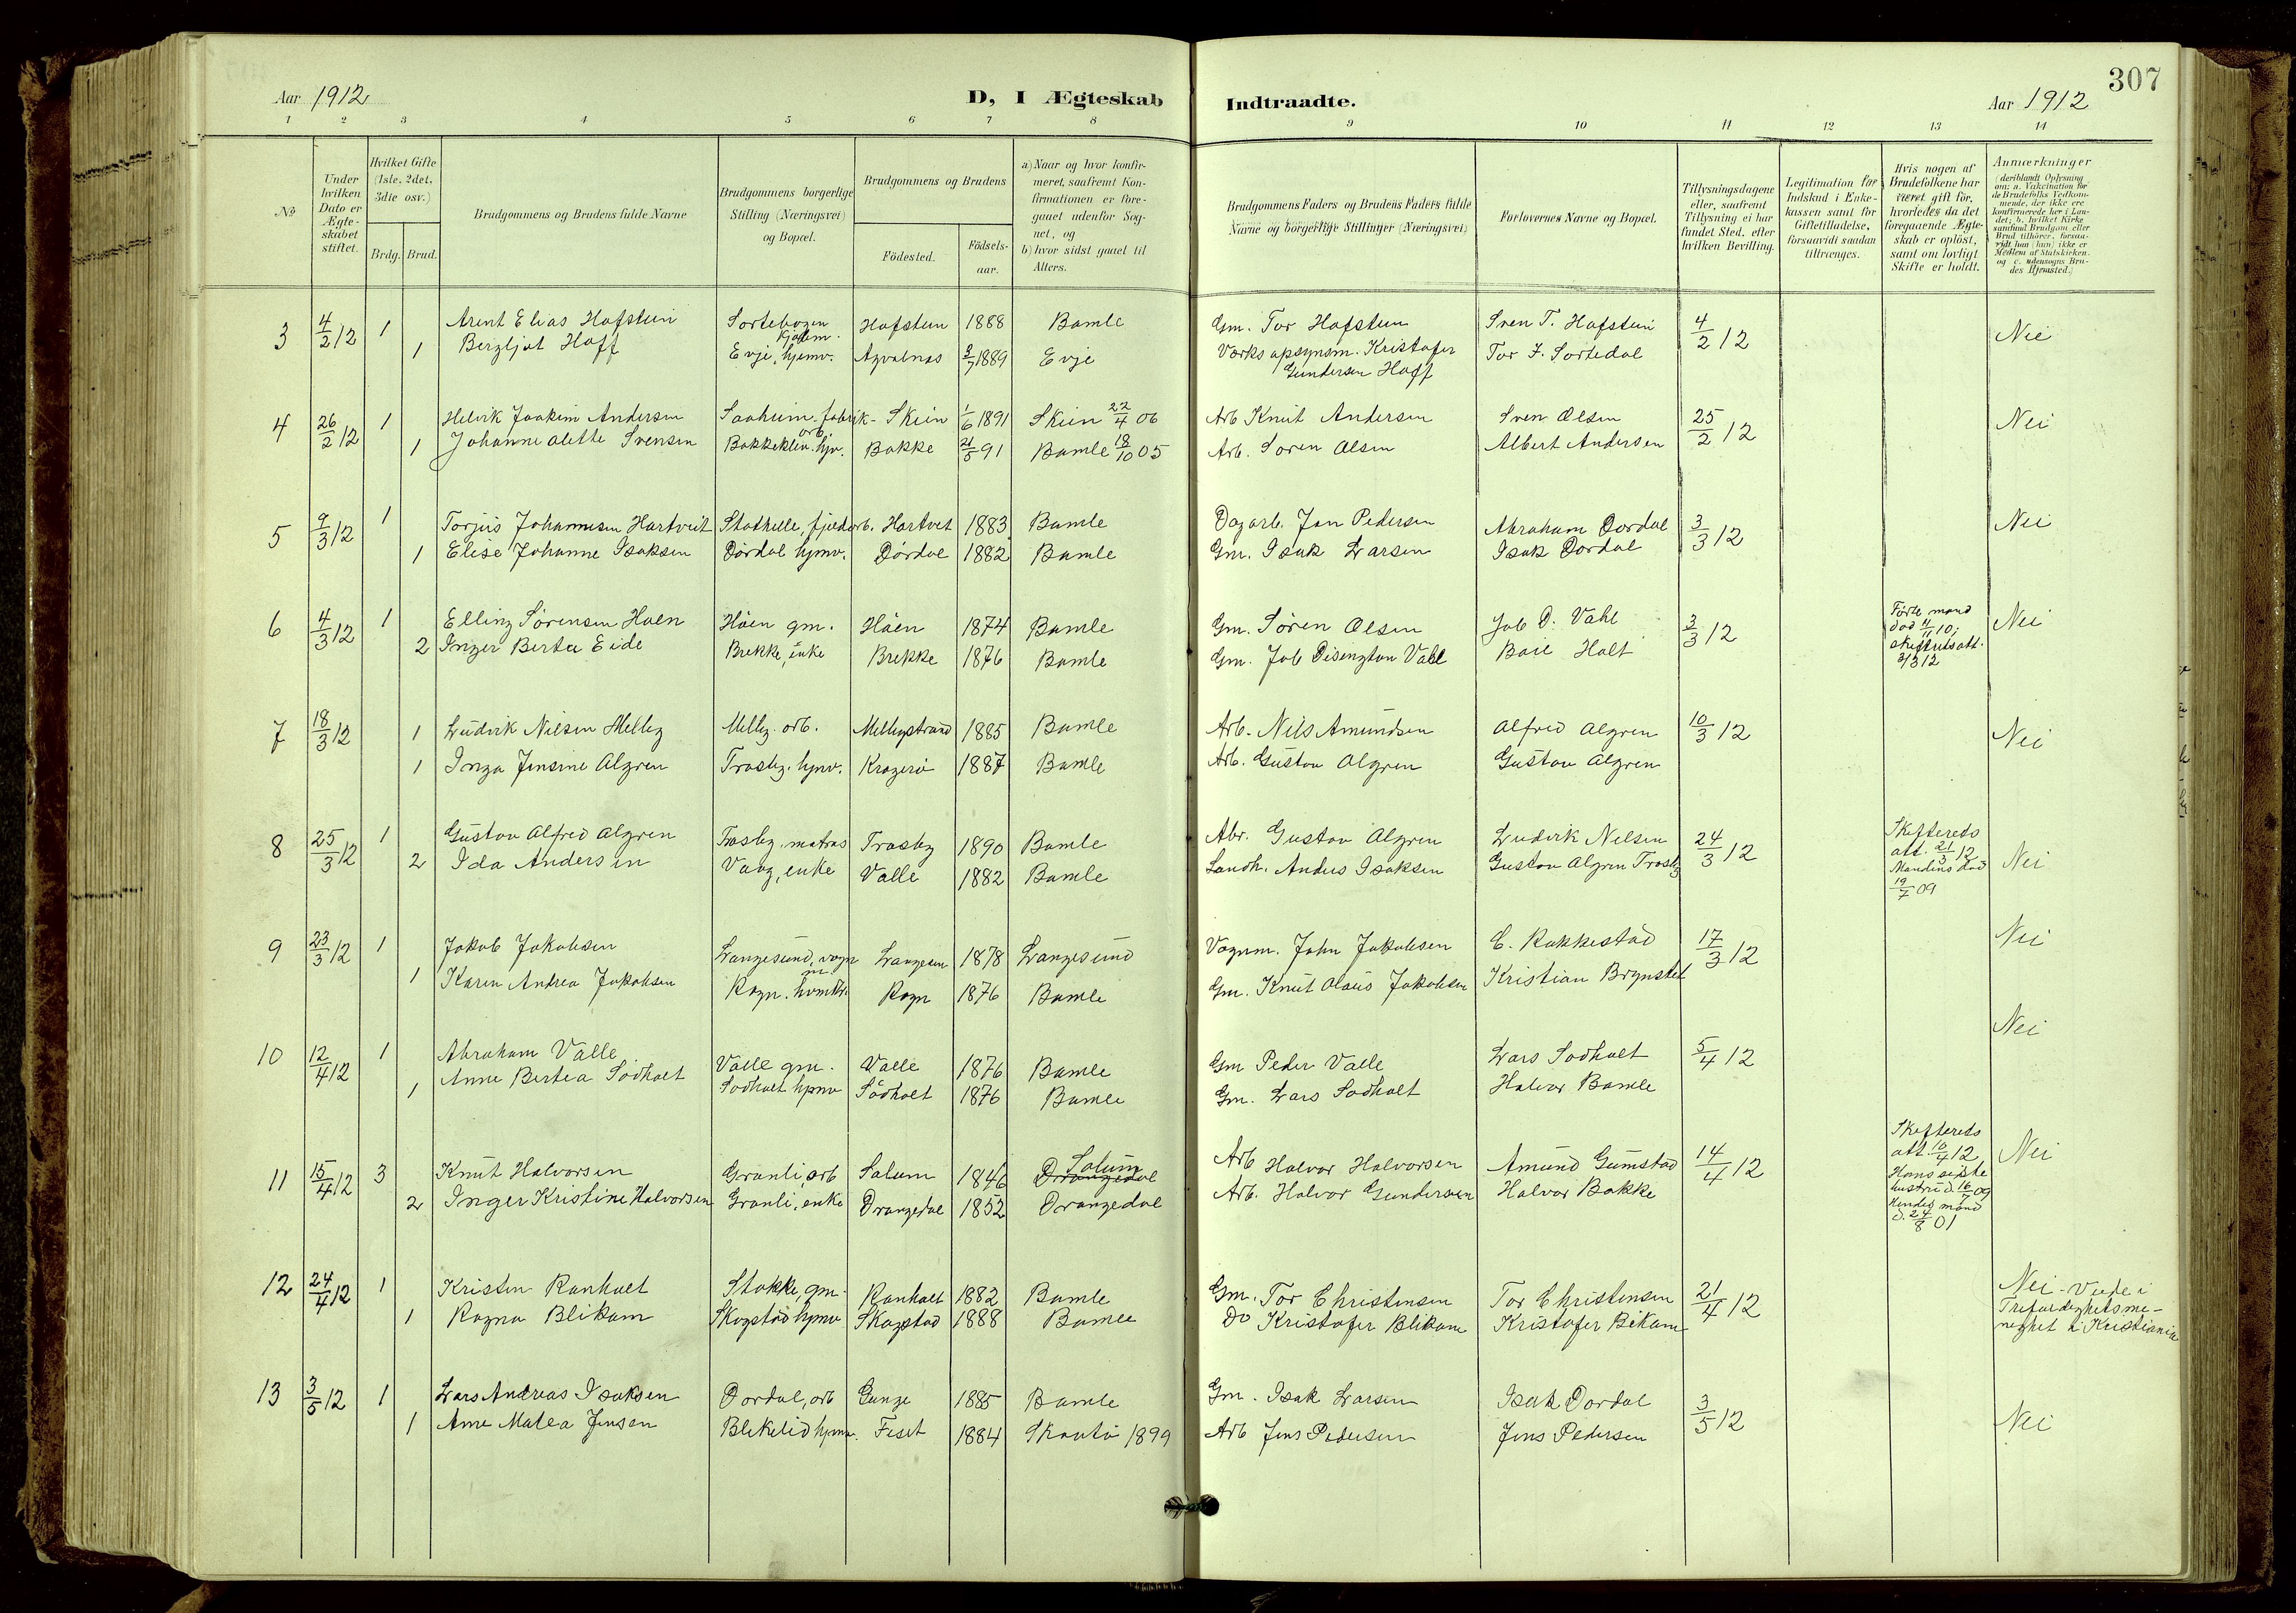 Aar 1912
D, I Ægteskab
Indtraadte.
Aar 1912
307
1 2 3 4 5 6 7 8 9 10 11 12 13 14
No
Under hvilken Dato er Ægte-skabet stiftet.
Hvilket Gifte (1ste, 2det, 3die osv.)
Brdg. Brud.
Brudgommens og Brudens fulde Navne
Brudgommens borgerlige Stilling (Næringsvei) og Bopæl.
Brudgommens og Brudens
Födested.
Födsels-aar.
a) Naar og hvor konfir-meret, saafremt Kon-firmationen er fore-gaaet udenfor Sog-net, og
b) hvor sidst gaaet til Alters.
Brudgommens Faders og Brudens Faders fulde Navne og borgerlige Stillinger (Næringsvei)
Forlovernes Navne og Bopæl.
Tillysningsdagene eller, saafremt Tillysning ei har fundet Sted, efter hvilken Bevilling.
Legitimation for Indskud i Enke-kassen samt for Giftetilladelse, forsaavidt saadan tiltrænges.
Hvis nogen af Brudefolkene har været gift för, hvorledes da det foregaaende Ægte-skab er oplöst, samt om lovligt Skifte er holdt.
Anmærkninger (deriblandt Oplysning om: a. Vakcination for de Brudefolks Vedkom-mende, der ikke ere konfirmerede her i Lan-det; b. hvilket Kirke-samfund Brudgom eller Brud tilhörer, forsaa-vidt han (hun) ikke er Medlem af Statskirken. og c. udensogns Bru-des Hjemsted.)
3 4/2 12 1 Arent Elias Hafstein Hafstein 1888 Bamle Gm. Tor Hafstein Sven T. Hafstein 4/2 12 Nei
1 Bergljot Hoff Evje, hjemv. 1889 Evje Værksopsynsm. Kristofer Gundersen Hoff Tor J. Sortedal
4 26/2 12 1 Joakim Andersen fabrik-arb. Skien 1/6 1891 Skien 22/4 06 Arb Knut Andersen Sven Olsen 25/2 12 Nei
1 Johanne Alette Svensen Bakkekleiv. hjv. Bakke 21/5 91 Bamle 18/10 05 Arb. Soren Olsen Albert Andersen
5 9/3 12 1 Torjus Johannesen Hartveit Stathelle, fjeldarb. Hartvet 1883 Bamle Dagarb. Jan Pedersen Abraham Dordal 3/3 12 Nei
1 Elise Johanne Isaksen Dördal hjmv. Dördal 1882 Bamle Gm. Isak Larsen Isak Dordal
6 4/3 12 1 Elling Sörensen Haen Håen gm. Håen 1874 Bamle Gm. Sören Olsen Job D. Vahl 3/3 12 Förte mand död 4/11 10; skifteretsatt. 3/3 12 Nei
2 Inger Berta Eide Brekke, enke Brekke 1876 Bamle Gm. Job Disington Vahl Boie Holt
7 18/3 12 1 Ludvik Nilsen Melby Melby. arb. Melbystrand 1885 Bamle Arb. Nils Amundsen Alfred Algren 10/3 12 Nei
1 Inga Jensine Algren Trosby. hjmv. Kragerö 1887 Bamle Arb. Gustav Algren Gustav Algren
8 25/3 12 1 Gustav Alfred Algren Trosby, matros Trosby 1890 Bamle Abr. Gustav Algren Ludvik Nilsen 24/3 12 Skifterets att. 21/3 12 Mandens död 19/7 09 Nei
2 Ida Andersen Vaag, enke Valle 1882 Bamle Landh. Anders Isaksen Gustav Algren Trosby
9 23/3 12 1 Jakob Jakobsen Langesund, vognm. Langesun 1878 Langesund Vognm. John Jakobsen C. Rakkestad 17/3 12 Nei
1 Karen Andrea Jakobsen Rogn. Rogn 1876 Bamle Gm. Knut Olaus Jakobsen Kristian Brynstel
10 12/4 12 1 Abraham Valle Valle gm. Valle 1876 Bamle Gm Peder Valle Lars Sodholt 5/4 12 Nei
1 Anne Bertea Södholt Södholt hjmv Södholt 1876 Bamle Gm. Lars Södholt Halvor Bamle
11 15/4 12 3 Knut Halvorsen Granli, arb Solum 1846 Drangedal Solum Arb Halvor Halvorsen Amund Gumstad 14/4 12 Skifterets att. 10/4 12 Hans sidste hustru d. 16/7 09 Hendes mand d. 24/8 01 Nei
2 Inger Kristine Halvorsen Granli, enke Drangedal 1852 Drangedal Arb. Halvor Gundersen Halvor Bakke
12 24/4 12 1 Kristen Ranholt Stokke, gm. Ranholt 1882 Bamle Gm. Tor Christensen Tor Christensen 21/4 12 Nei - Viede i Trefoldighetsme-nighet i Kristiania
1 Ragna Blikom Skogstad hjmv Skogstad 1888 Bamle Do Kristofer Blikom Kristofer Bikom
13 3/5 12 1 Lars Andreas Isaksen Dordal, arb 1885 Bamle Gm. Isak Larsen Isak Dordal 3/5 12 Nei
1 Anne Matea Jensen Blekelid hjmv. Feset 1884 Skaatö 1899 Arb Jens Pedersen Jens Pedersen